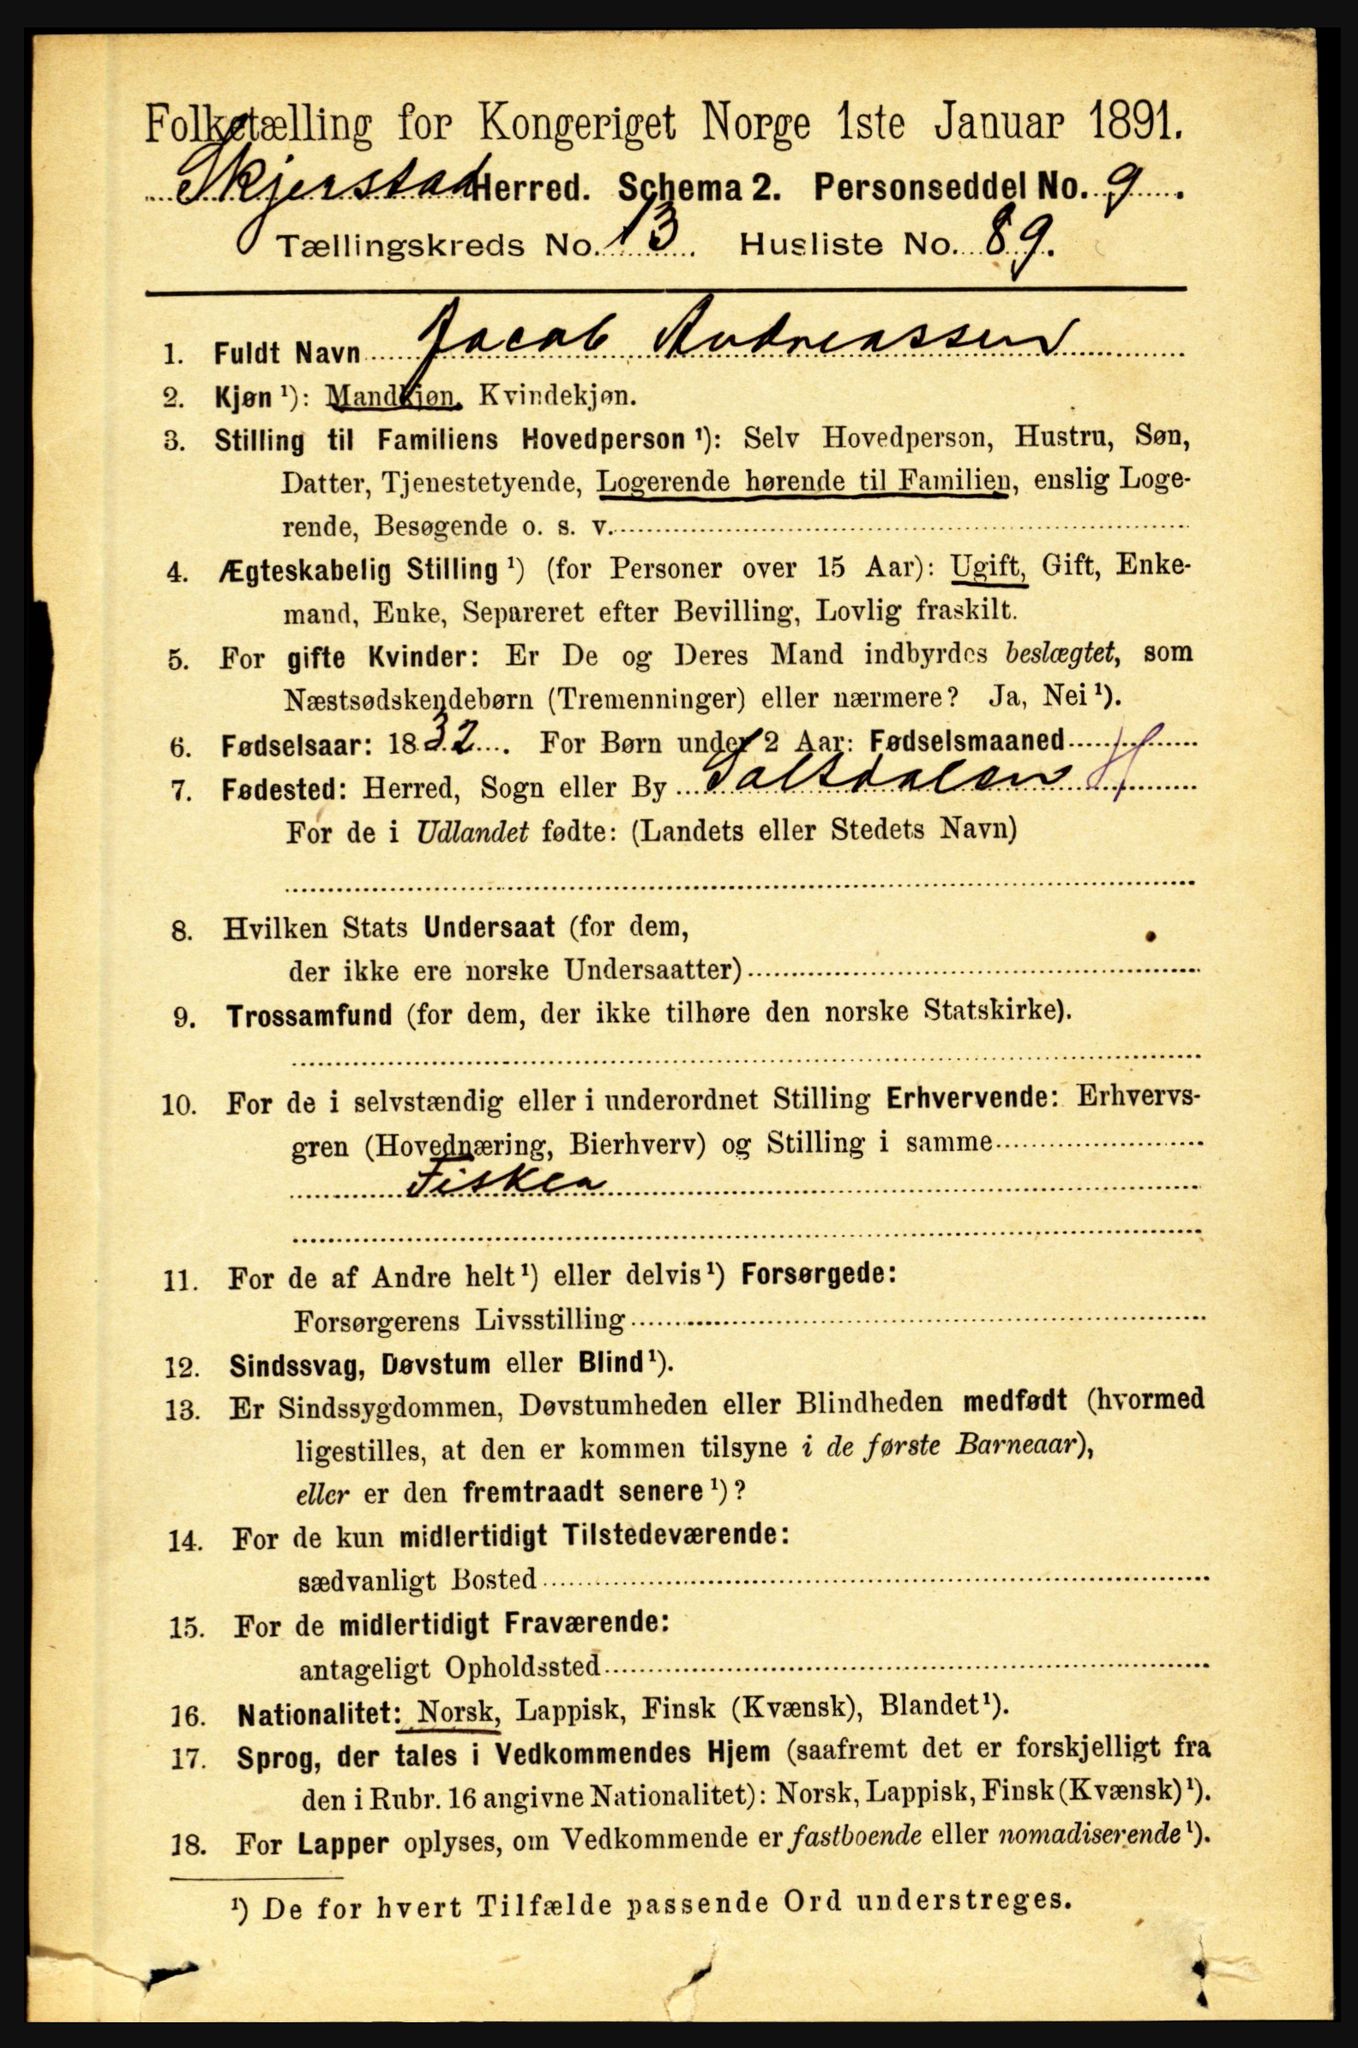 Folketælling for Kongeriget Norge 1ste Januar 1891.
Skjerstad Herred. Schema 2. Personseddel No. 9.
Tællingskreds No. 13. Husliste No. 89.
1. Fuldt Navn Jacob Andreassen
2. Kjøn ¹): Mandkjøn, Kvindekjøn.
3. Stilling til Familiens Hovedperson ¹): Selv Hovedperson, Hustru, Søn,
Datter, Tjenestetyende, Logerende hørende til Familien, enslig Loge-
rende, Besøgende o. s. v.
4. Ægteskabelig Stilling ¹) (for Personer over 15 Aar): Ugift, Gift, Enke-
mand, Enke, Separeret efter Bevilling, Lovlig fraskilt.
5. For gifte Kvinder: Er De og Deres Mand indbyrdes beslægtet, som
Næstsødskendebørn (Tremenninger) eller nærmere? Ja, Nei ¹).
6. Fødselsaar: 1832. For Børn under 2 Aar: Fødselsmaaned
7. Fødested: Herred, Sogn eller By Saltdalen H
For de i Udlandet fødte: (Landets eller Stedets Navn)
8. Hvilken Stats Undersaat (for dem,
der ikke ere norske Undersaatter)
9. Trossamfund (for dem, der ikke tilhøre den norske Statskirke).
10. For de i selvstændig eller i underordnet Stilling Erhvervende: Erhvervs-
gren (Hovednæring, Bierhverv) og Stilling i samme
Fisker
11. For de af Andre helt ¹) eller delvis ¹) Forsørgede:
Forsørgerens Livsstilling
12. Sindssvag, Døvstum eller Blind ¹).
13. Er Sindssygdommen, Døvstumheden eller Blindheden medfødt (hvormed
ligestilles, at den er kommen tilsyne i de første Barneaar),
eller er den fremtraadt senere ¹)?
14. For de kun midlertidigt Tilstedeværende:
sædvanligt Bosted
15. For de midlertidigt Fraværende:
antageligt Opholdssted
16. Nationalitet: Norsk, Lappisk, Finsk (Kvænsk), Blandet ¹).
17. Sprog, der tales i Vedkommendes Hjem (saafremt det er forskjelligt fra
den i Rubr. 16 angivne Nationalitet): Norsk, Lappisk, Finsk (Kvænsk) ¹).
18. For Lapper oplyses, om Vedkommende er fastboende eller nomadiserende ¹).
¹) De for hvert Tilfælde passende Ord understreges.